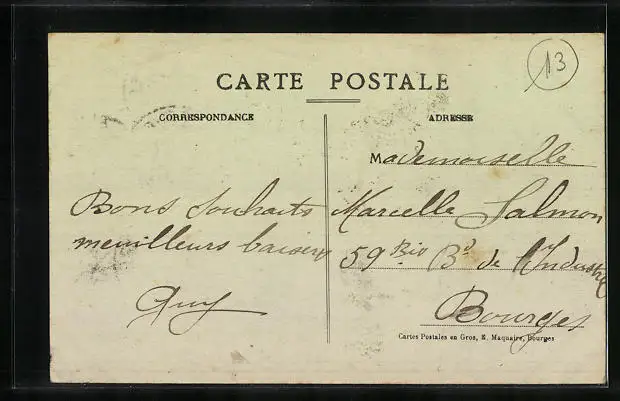 13
CARTE POSTALE
CORRESPONDANCE
ADRESSE
Mademoiselle
Bons souhaits
meuilleurs baisers
Guy
Marcelle Salmon
59 Bis Bd de l'Industrie
Bourges
Cartes Postales en Gros, E. Maquaire, Bourges